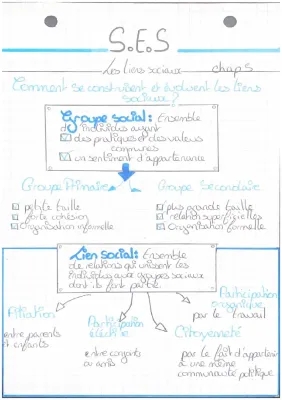 S.E.S
Les liens sociaux chap 5
Comment se construisent et évoluent les liens
sociaux ?
Groupe social : Ensemble
d'individus ayant
des pratiques et des valeurs
communes
un sentiment d'appartenance
Groupe Primaire
Groupe Secondaire
petite taille
plus grande taille
forte cohésion
relations superficielles
organisation informelle
organisation formelle
Lien social : Ensemble
de relations qui unissent les
individus aux groupes sociaux
dont ils font partie.
Filiation
entre parents
et enfants
Participation
élective
entre conjoints
ou amis
Participation
organique
par le travail
Citoyenneté
par le fait d'appartenir
à une même
communauté politique